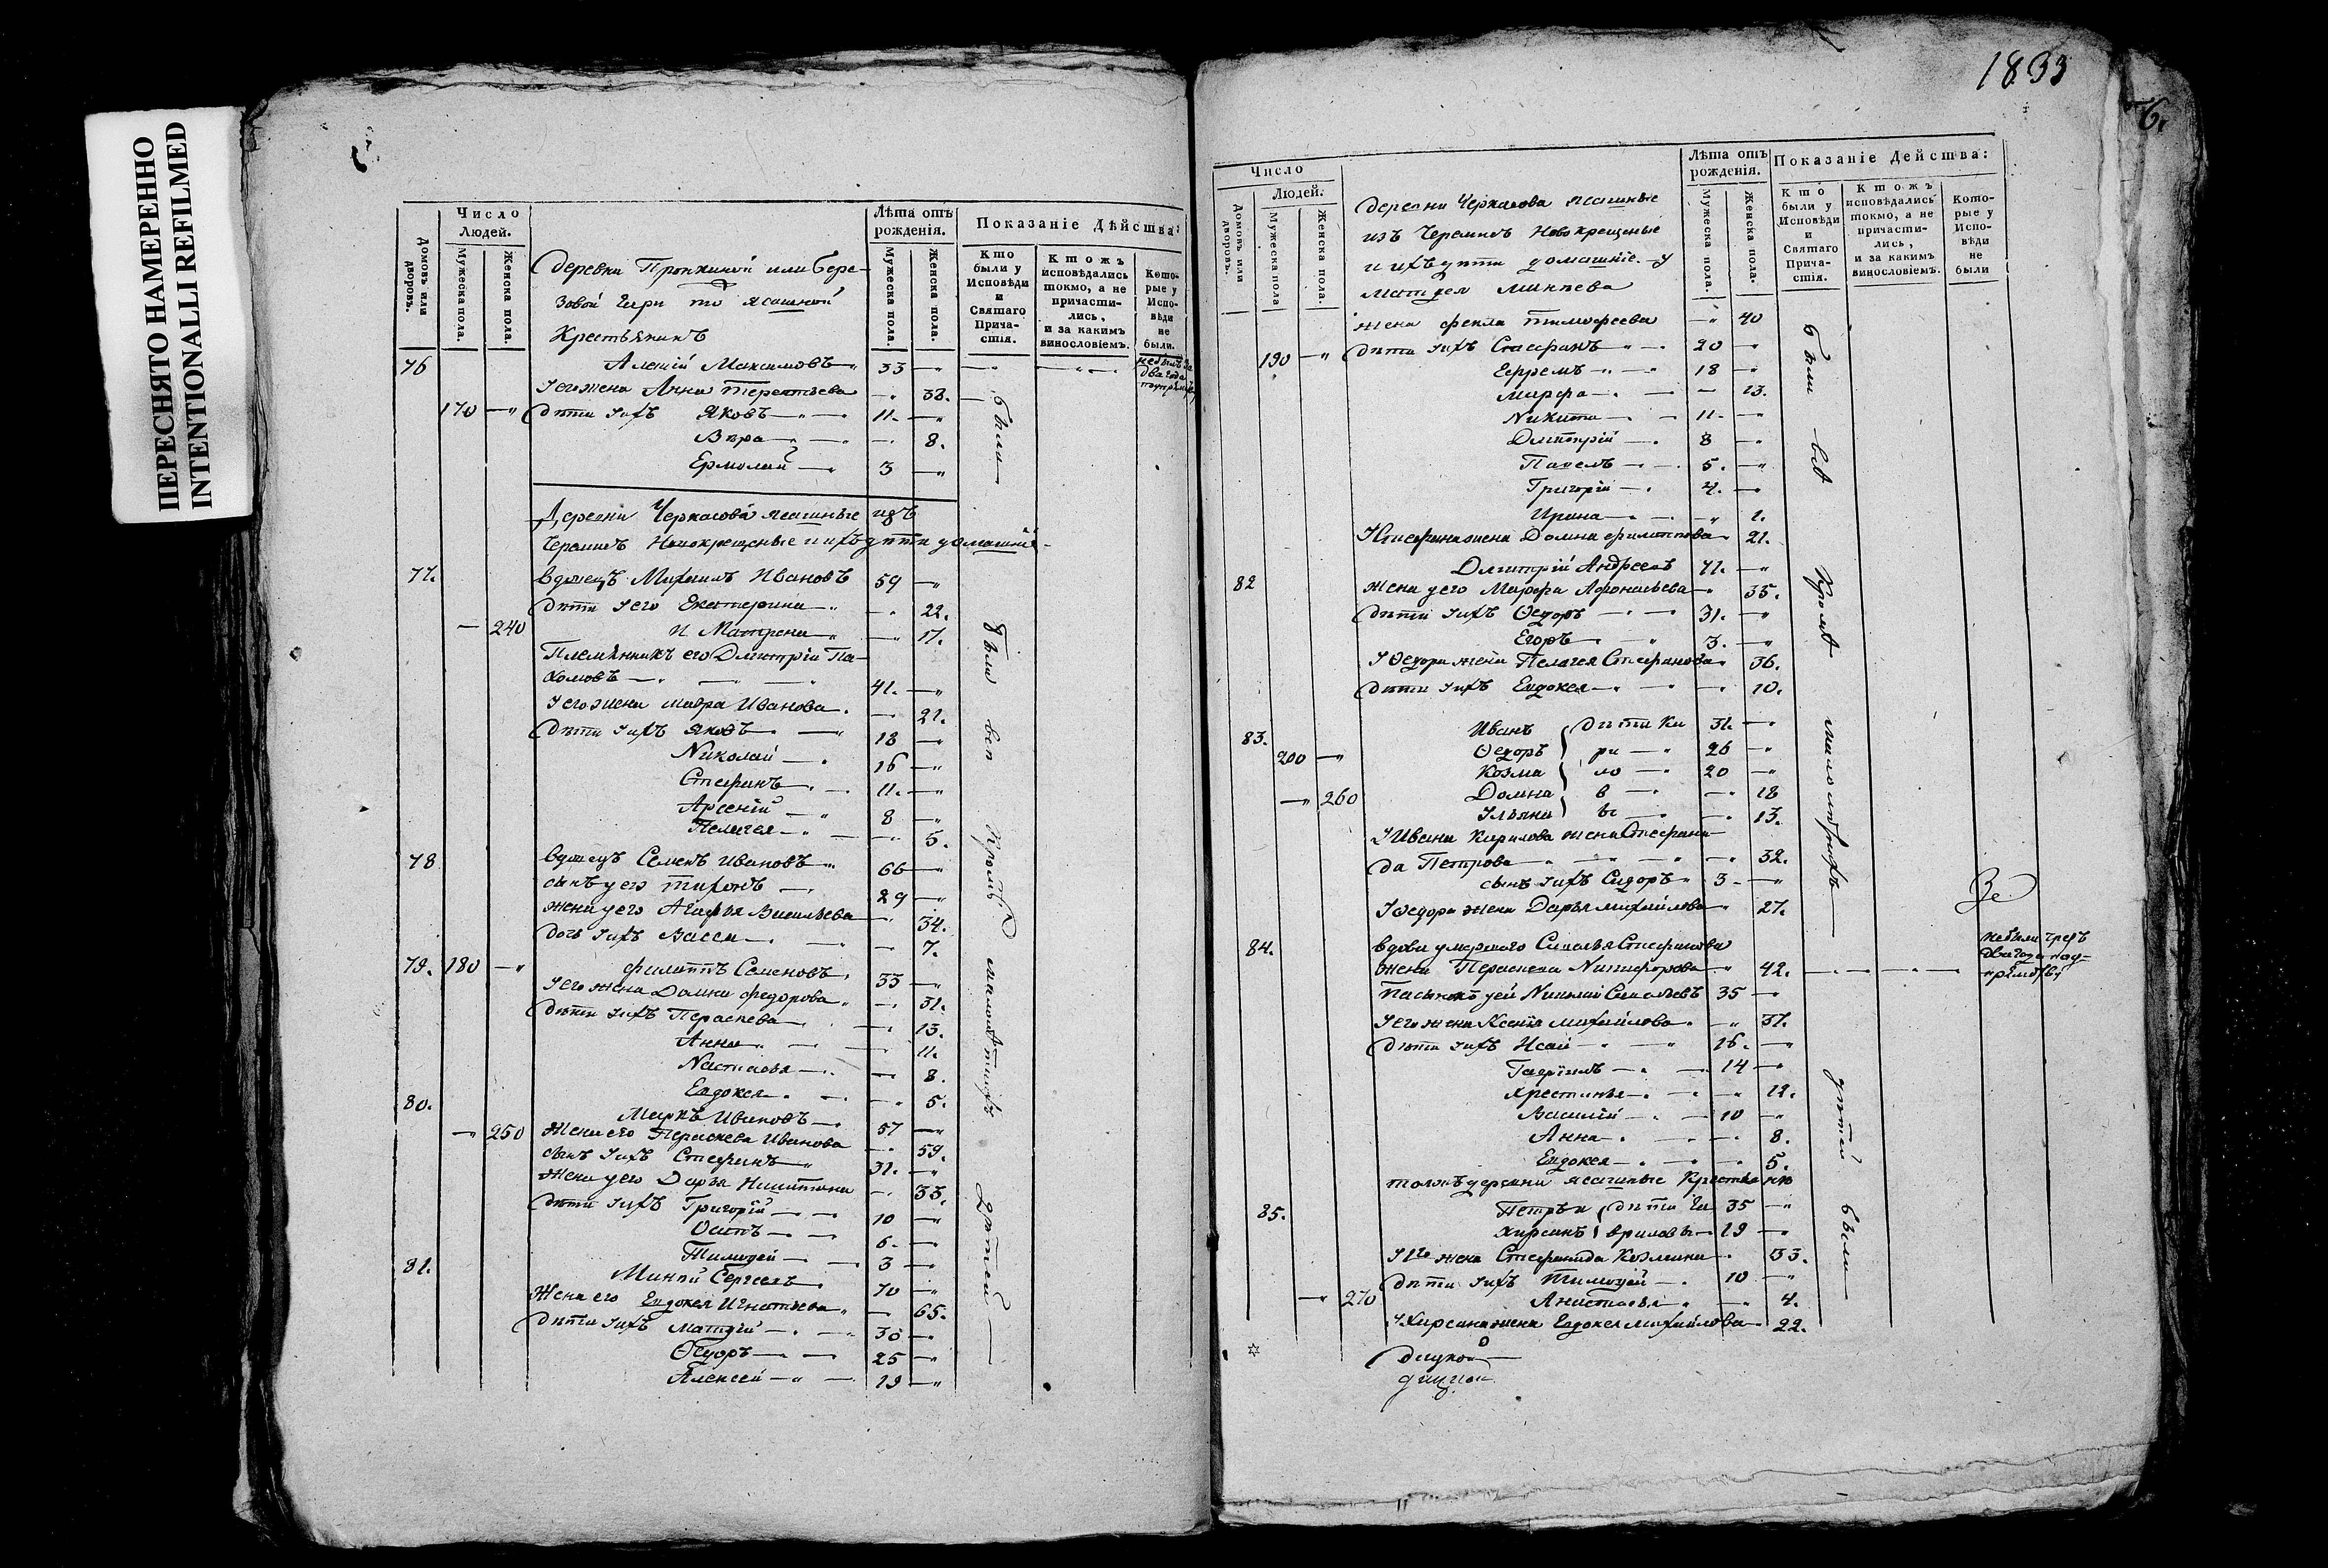 ПЕРЕСНЯТО НАМЕРЕННО
INTENTIONALLI REFILMED
Домовъ или дворовъ.
Число
Людей.
Мужеска пола.
Женска пола.
Лѣта отъ рожденія.
Мужеска пола.
Женска пола.
Показаніе Дѣйства:
Кто были у Исповѣди и Святаго Прича-стія.
Ктожъ исповѣдались токмо, а не причасти-лись, и за какимъ винословіемъ.
Кото-рые у Испо-вѣди не были.
Деревни Пронкиной или Бере-
зовой Гари то ясашной
Крестьянинъ
76 Алексій Максимовъ 33
Уегожена Анна Терентьева 38.
170 Дѣти Уихъ Яковъ 11.
Вѣра 8.
Ермолай 3
были
Деревни Черкасова ясашные изъ
Черемисъ Новокрещеные и ихъ дѣти домашніе
77. вдовецъ Михаилъ Ивановъ 59
Дѣти Уего Екатерина 22.
240 И Матрена 17.
Племянникъ его Дмитрій Па-
хомовъ 41.
Уегожена мавра Иванова
Дѣти Уихъ Яковъ 18
Николай 16
Стефанъ 11.
Арсеній 8
Пелагея 5.
78 вдовецъ Семенъ Ивановъ 66
сынъ уего тихонъ 29
жена уего Агафья Васильева 34.
дочь Уихъ Васса 7.
79. 180 филиппъ Семеновъ 33
Уего жена Домна федорова 31.
Дѣти Уихъ Параскева 13.
Анна 11.
Настасья 8.
Евдокея 5.
80. Маркъ Ивановъ 57
250 Жена его Параскева Иванова 59.
сынъ Уихъ Стефанъ 31.
жена уего Дарья Никитина 33.
Дѣти Уихъ Григорій 10
Осипъ 6.
Тимофей 3
81. Минѣй Сергеевъ 70
Жена его Евдокея Игнатьева 65.
Дѣти Уихъ матвѣй
Ѳедоръ 25
Алексей 19
были всѣ Кромѣ малолѣтнихъ дѣтей
1833
6.
Число
Людей.
Домовъ или дворовъ.
Мужеска пола
Женска пола.
Лѣта отъ рожденія.
Мужеска пола.
Женска пола.
Показаніе Действа:
Кто были у Исповѣди и Святаго Прича-стія.
Ктожъ исповѣдались токмо, а не причасти-лись, и за какимъ винословіемъ.
Кото-рые у Испо-вѣди не были
деревни Черкасова ясашные
изъ Черемисъ Новокрещеные
и ихъ дѣти домашніе. у
матвея Минѣева
жена фекла тимофеева 40
190 Дѣти Уихъ Стефанъ 20
Ефремъ 18
марфа 13.
Никита 11.
Дмитрій 8
Павелъ 5.
Григорій 4.
Ирина
Устефана жена Домна филиппова 21.
82 Дмитрій Андреевъ
жена уего Марфа Афонасьева 35.
Дѣти Уихъ Ѳедоръ 31.
Егоръ 3.
УѲедора жена Пелагея Стефанова 36.
Дѣти Уихъ Евдокея 10.
83. Иванъ дѣти Ки 31.
200 Ѳедоръ ри 26
Козма ло 20
260 Домна в 18
Ульяна ы 13.
УИвана Кирилова жена Стефани
да Петрова 32.
сынъ Уихъ Сидоръ 3
Уѳедора жена Дарья михайлова 27.
84. вдова умершего Савелья Стефанова
жена Параскева Никифорова 42.
Пасынокъ уей Николай Савельевъ 35
Уего жена Ксенія михайлова 37.
Дѣти Уихъ Исай 16.
Гаврiилъ 14
Хрестинья 12.
Василій 10
Анна 8.
Евдокея 5.
тояжъ деревни ясашные Крестьяня
85. Петръ и дѣти Га 35
Хирсанъ вриловы 19
Уего жена Стефанида Козмина 33.
Дѣти Уихъ Тимофей 10
270 Анастасья 4.
УХирсана жена Евдокея михайлова 22.
были всѣ Кромѣ малолѣтнихъ дѣтей были